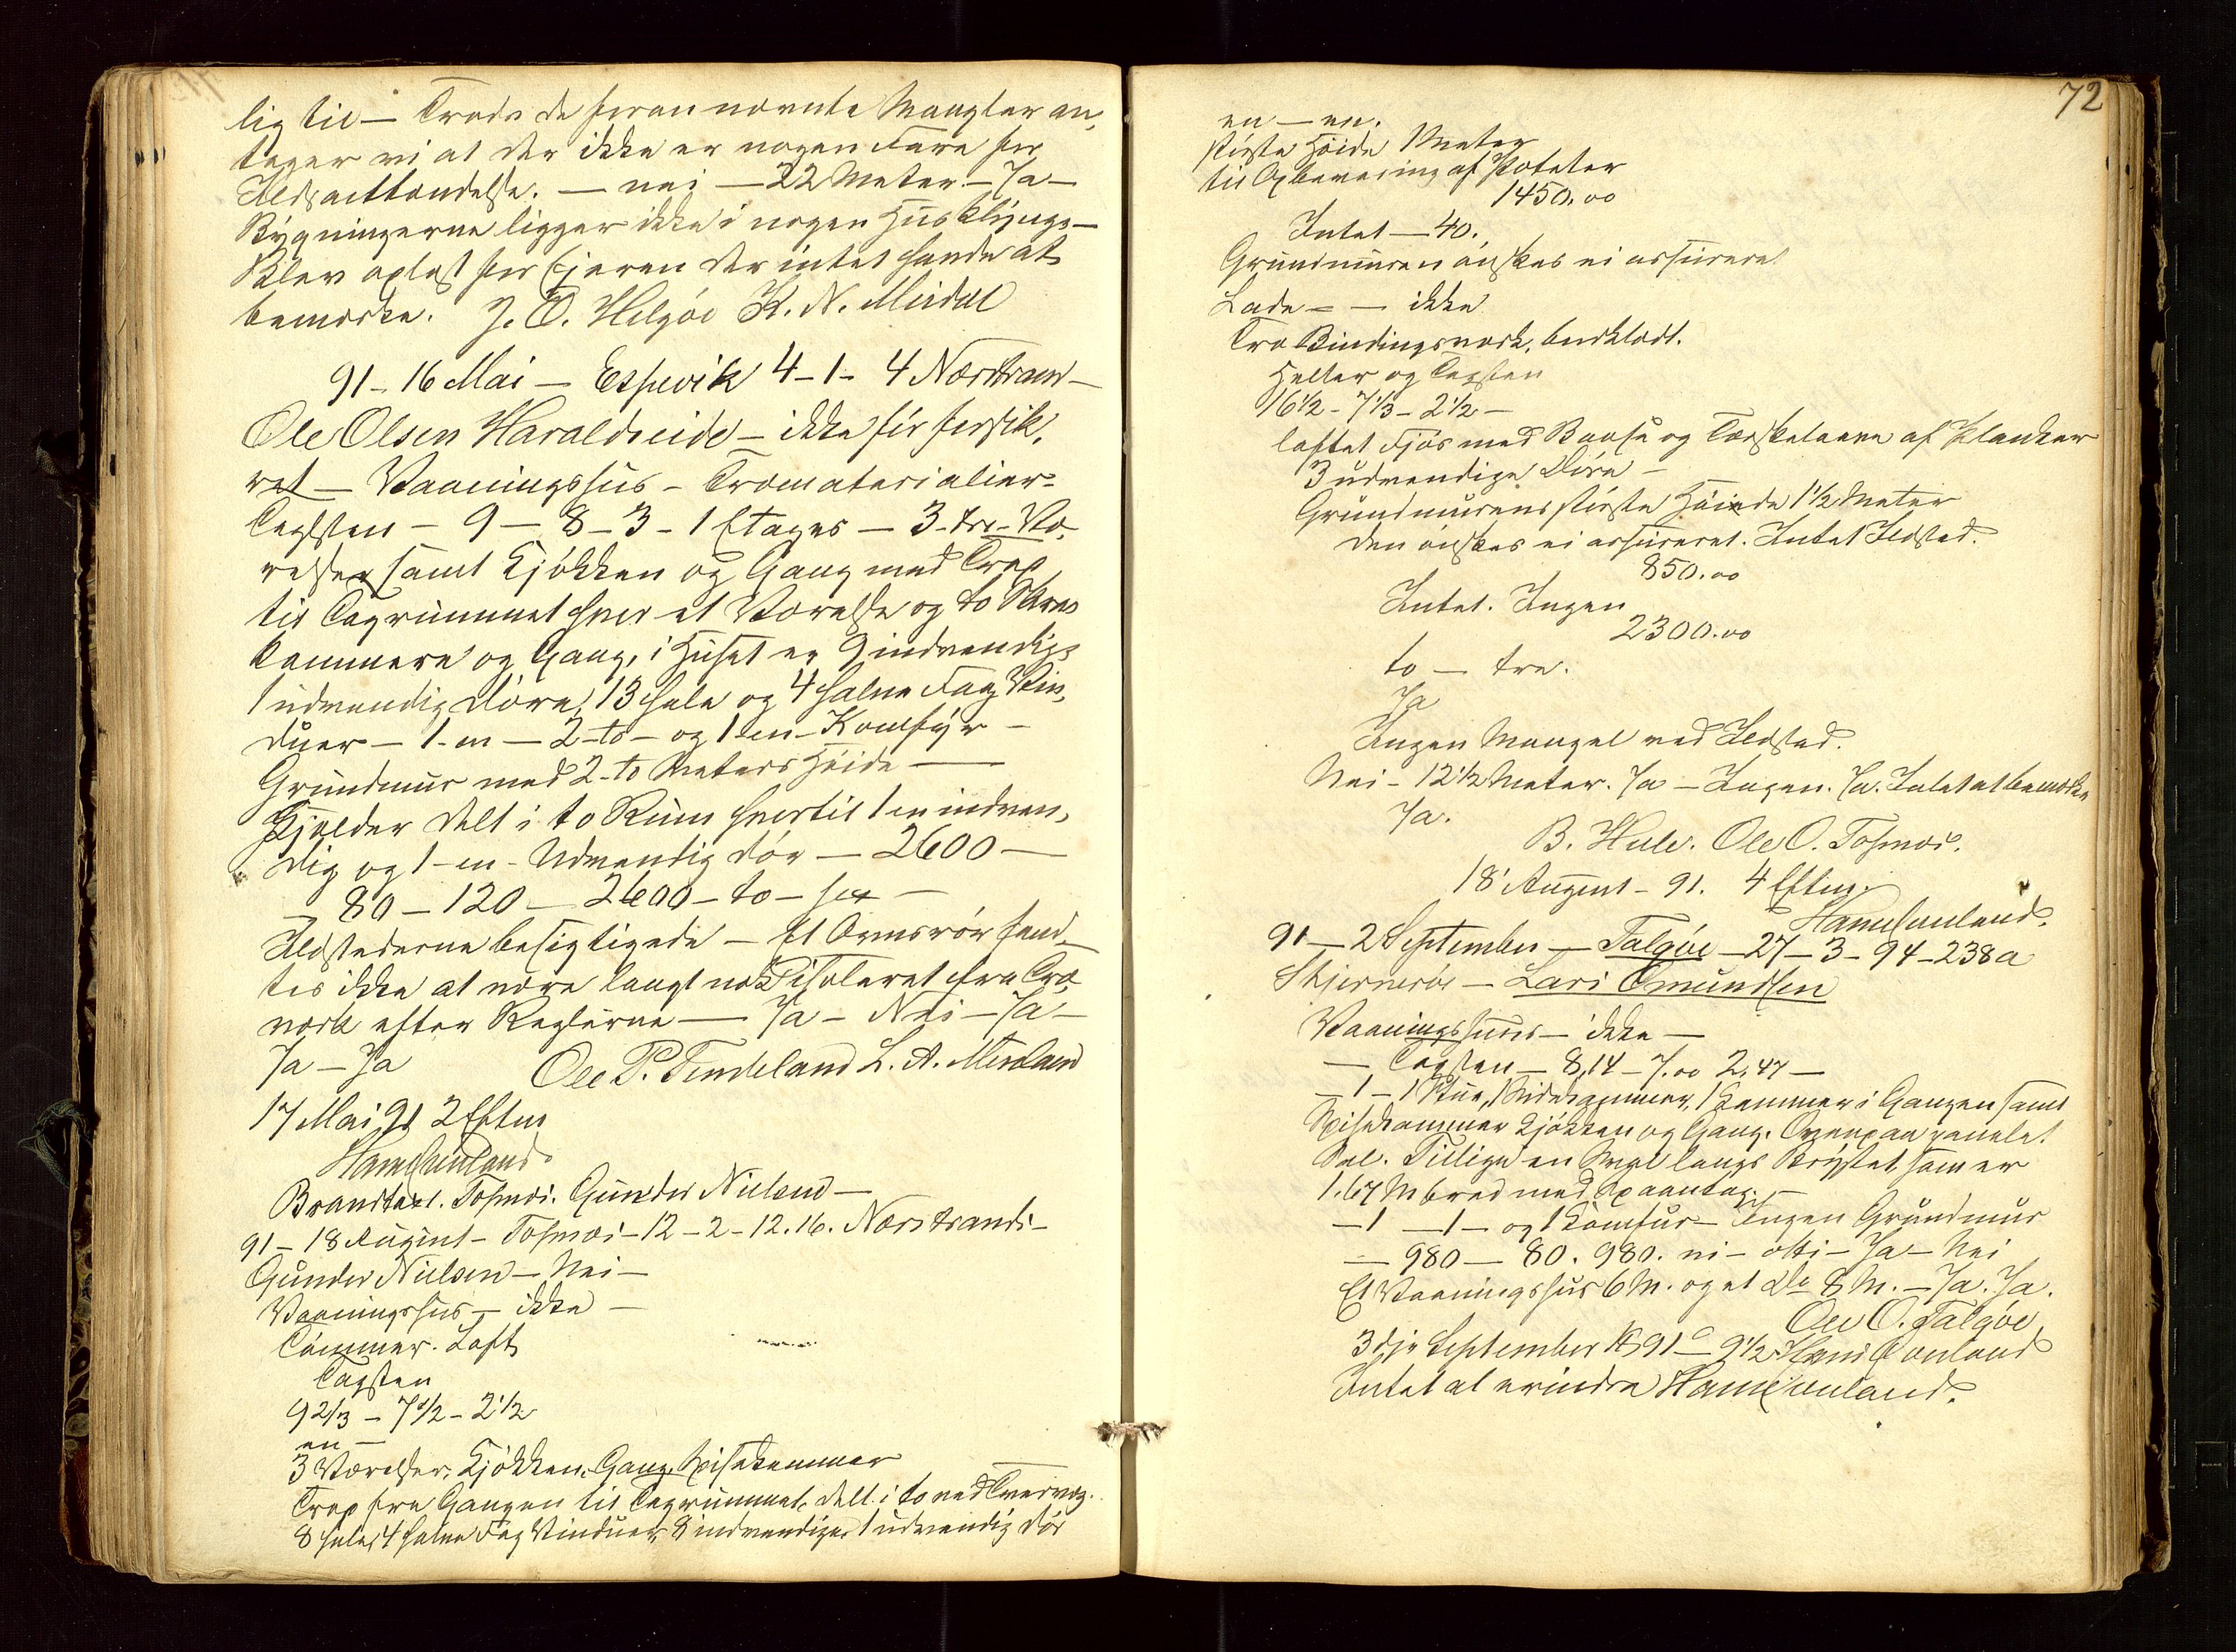 lig til — Trods de foran nævnte Mangler an-
tager vi at der ikke er nogen Fare for
Ildsantændelse. — nei — 22 Meter — Ja —
Bygningerne ligger ikke i nogen Husklynge —
Blev oplæst for Ejeren der intet havde at
bemærke. J. O. Helgøe K. N. Meidal
91 — 16 Mai — Espevik 4-1-4 Nærstrand —
Ole Olsen Haraldseide — ikke før forsik-
ret — Vaaningshus — Træmaterialier —
Taglsten — 9 — 8 — 3 — 1 Etages — 3-tre-Væ-
relser samt Kjøkken og Gang med Trap
til Tagrummet hvor et Værelse og to
kammere og Gang, i Huset er 9 indvendig
1 udvendig Døre, 13 hele og 4 halve Fag Vin-
duer — 1-en — 2-to — og 1 en — Komfyr —
Grundmur med 2-to Meters Høide —
Kjelder delt i to Rum hvortil 1 en indven-
dig og 1-en-Udvendig dør — 2600 —
— 80 — 120 — 2600 — to — sex —
Ildstederne besigtigede — Et Ovnsrør fand-
tes ikke at være langt nok isoleret fra Træ-
værk efter Reglerne — Ja — Nei — Ja —
Ja — Ja Ole P. Tendeland L. A.
17 Mai 91 2 Eftm
Brandtaxt. Tosmoi. Gunder Nielsen —
91 — 18 August — Tosmoi — 12 — 2 — 12.16. Nærstrands —
Gunder Nielsen — Nei —
Vaaningshus — ikke —
Tømmer. Loft
Tagsten
9 2/3 — 7 1/2 — 2 1/2
en —
3 Værelser, Kjøkken, Gang, Spisekammer
Trap fra Gangen til Tagrummet, delt i to ved Tværvæg.
8 hele, 4 halve Fag Vinduer, 8 indvendige, 1 udvendig dør
72
en — en.
største Høide 1 Meter
til Opbevaring af Poteter
1450.00
Intet — 40.
Grundmuren ønskes ei assureret
Lade — — ikke
Træ Bindingsværk, bordklædt.
Heller og Tagsten
16 1/2 — 7 1/3 — 2 1/2 —
loftet Fjøs med Baase og Tærskelaave af Planker
3 udvendige Døre —
Grundmurens største Høide 1 1/2 Meter
den ønskes ei assureret. Intet Ildsted.
850.00
Intet. Ingen
2300.00
to — tre.
Ja
Ingen Mangel ved Ildsted.
Nei — 12 1/2 Meter. Ja — Ingen. Ja. Intet at bemærke
Ja.
B. Hule. Ole O. Tosmoi.
18 August — 91. 4 Eftm.
91 — 2 September — Talgøe — 27 — 3 — 94 — 238a
Skjernerøe — Lars Omundsen
Vaaningshus — ikke —
— Tagsten — 8,14 — 7.00 2,47 —
— 1 — 1 Stue, 1 Sidekammer, 1 Kammer i Gangen samt
Spisekammer Kjøkken og Gang. Ovenpaa panelet
Sal. Tillige en Sval langs som er
1.67 M bred med Spaantag. —
— 1 — 1 — og 1 Komfur — Ingen Grundmur
— 980 — 80. 980. ni — otti — Ja — Nei
Et Vaaningshus 6 M. og et Do 8 M. — Ja. Ja.
Ole O. Talgøe
3dje September 1891 — 9 1/2
Intet at erindre